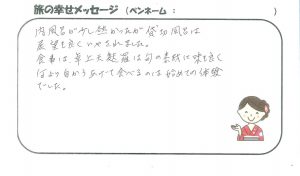 旅の幸せメッセージ（ペンネーム：　　　　）
内風呂が少し熱かったが貸切風呂は
展望も良くいやされました。
食事は卓上天ぷらは旬の素材に味も良く
何より自から揚げて食べるのは始めての体験
でした。